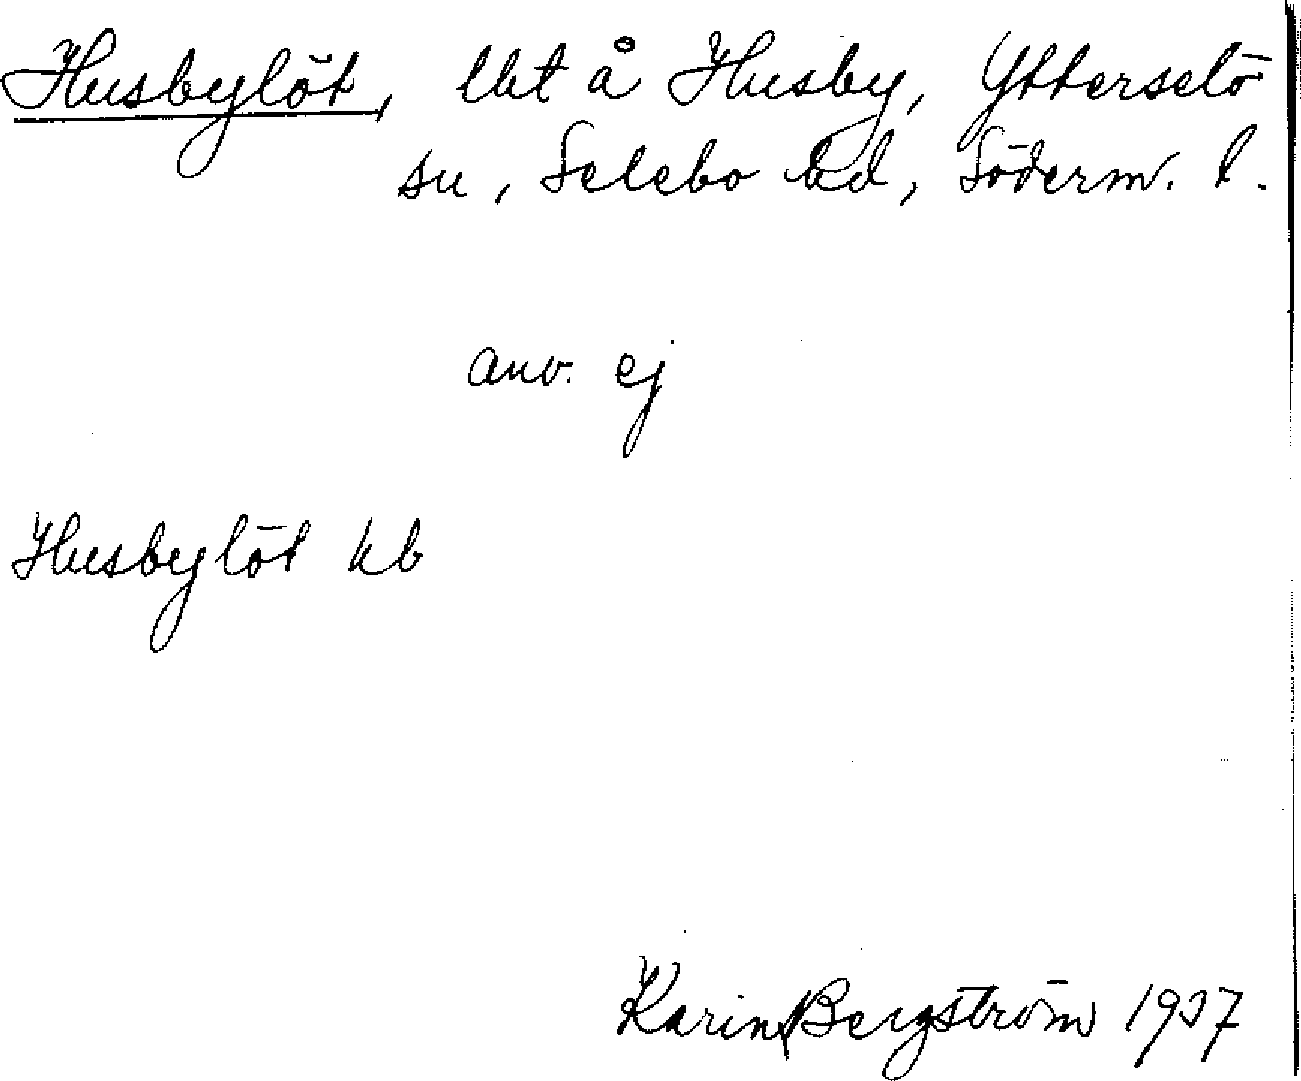 Husbylöt, lht å Husby, Ytterselö
sn, Selebo hd, Söderm. l.
anv. ej
Husbylöt kb
Karin Bergström 1937